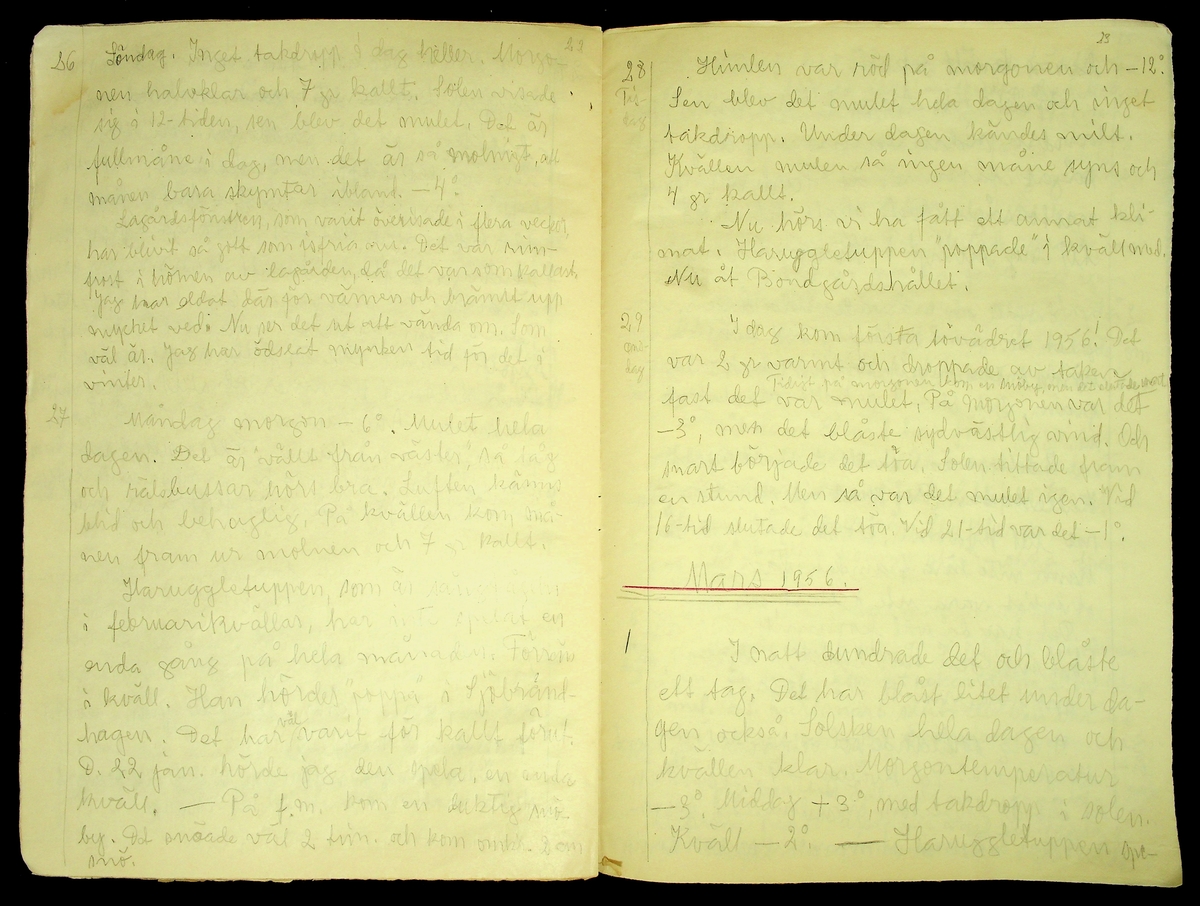 22
26 Söndag. Inget takdropp i dag heller. Morgo-
nen halvklar och 7 gr kallt. Solen visade
sig i 12-tiden, sen blev det mulet. Det är
fullmåne i dag, men det är så molnigt, att
månen bara skymtar iblant. -4°.
Lagårdsfönstren, som varit överisade i flera veckor,
har blivit så gott som isfria nu. Det var rim-
frost i hörnen av lagården, då det var som kallast.
Jag har eldat där för värmen och brännt upp
mycket ved. Nu ser det ut att vända om. Som
väl är. Jag har ödslat mycken tid för det i
vinter.
27 Måndag morgon -6°. Mulet hela
dagen. Det är "vällt från väster", så tåg
och rälsbussar hörs bra. Luften känns
blid och behaglig. På kvällen kom må-
nen fram ur molnen och 7 gr kallt.
Haruggletuppen, som är
i februarikvällar, har en
enda gång på hela månaden. Förrän
i kväll. Han hördes "poppa" i Sjöbränt-
hagen. Det har väl varit för kallt förut.
D. 22 jan. hörde jag den spela, en enda
kväll. — På f.m. kom en duktig snö-
by. Det snöade väl 2 tim. och kom omkr. 2 cm
snö.
23
28 Himlen var röd på morgonen och -12°.
Tis-
dag
Sen blev det mulet hela dagen och inget
takdropp. Under dagen kändes milt.
Kvällen mulen så ingen måne syns och
4 gr kallt.
Nu hörs vi ha fått ett annat kli-
mat. Haruggletuppen "poppade" i kväll med.
Nu åt Bondgårdshållet.
29 I dag kom första tövädret 1956! Det
ons-
dag
var 2 gr varmt och droppade av taken
Tidigt på morgonen kom en snöby, men det
fast det var mulet. På morgonen var det
-3°, men det blåste sydvästlig vind. Och
snart började det töa. Solen tittade fram
en stund. Men så var det mulet igen. Vid
16-tid slutade det töa. Vid 21-tid var det -1°.
Mars 1956.
1 I natt dundrade det och blåste
ett tag. Det har blåst litet under da-
gen också. Solsken hela dagen och
kvällen klar. Morgontemperatur
-3°. Middag +3°, med takdropp i solen.
Kväll -2°. — Haruggletuppen spe-